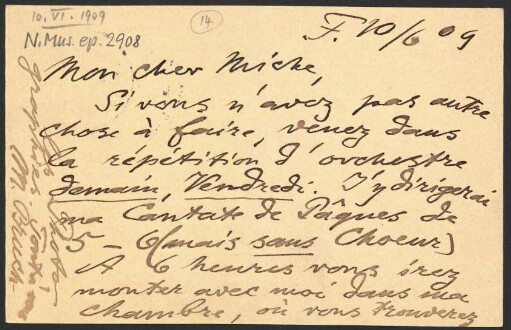 10. VI. 1909
14
N. Mus. ep. 2908
F. 10/6 09
Mon cher Miche,
Si vous n'avez pas autre
chose à faire, venez dans
la répétition d'orchestre
demain, Vendredi. J'y dirigerai
ma Cantate de Pâques de
5 - 6 (mais sans Choeur)
A 6 heures vous irez
monter avec moi dans ma
chambre, où vous trouverez
graphies.
M. Bruch